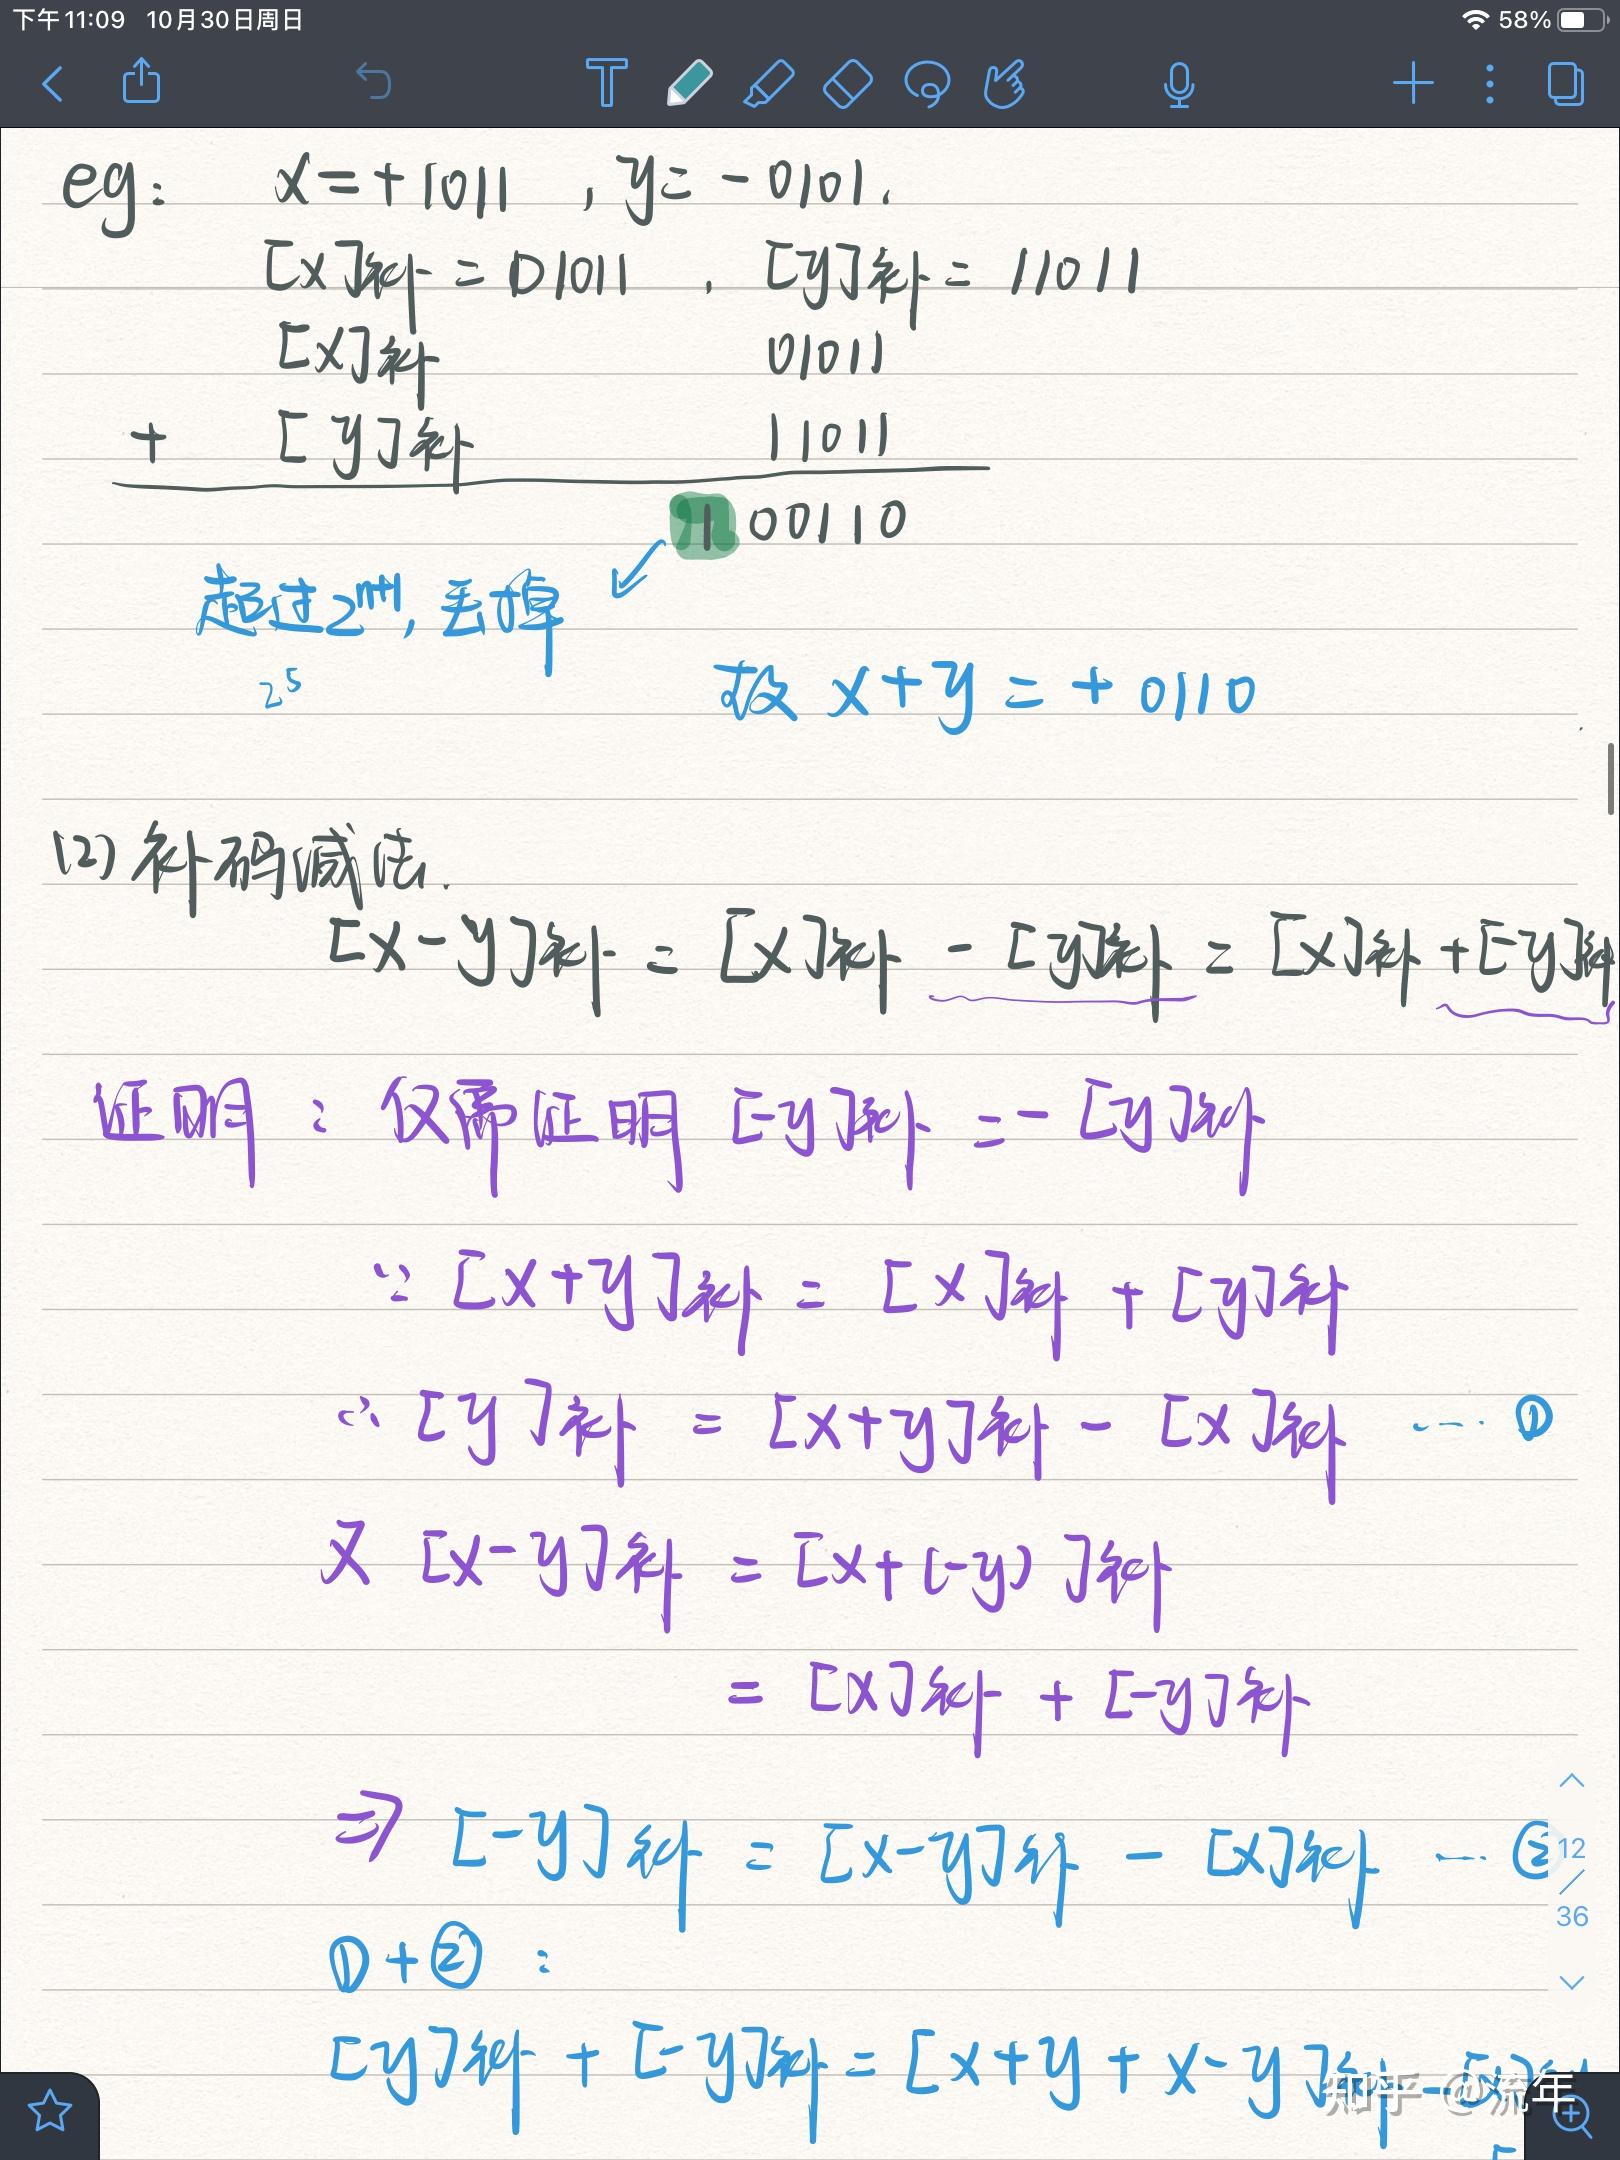 下午11:09 10月30日周日 58%
eg: x=+1011 , y=-0101.
[x]补=01011 . [y]补=11011
[x]补 01011
+ [y]补 11011
1 00110
超过2^n+1, 丢掉
2^5
故 x+y=+0110
(2) 补码减法.
[x-y]补 = [x]补 - [y]补 = [x]补+[-y]补
证明: 仅需证明 [-y]补 = -[y]补
∵ [x+y]补 = [x]补 + [y]补
∴ [y]补 = [x+y]补 - [x]补 ···· ①
又 [x-y]补 = [x+(-y)]补
= [x]补 + [-y]补
⇒ [-y]补 = [x-y]补 - [x]补 ··· ②
12
/
36
①+② :
[y]补 + [-y]补 = [x+y+x-y]补 - [x]补
知乎 @流年